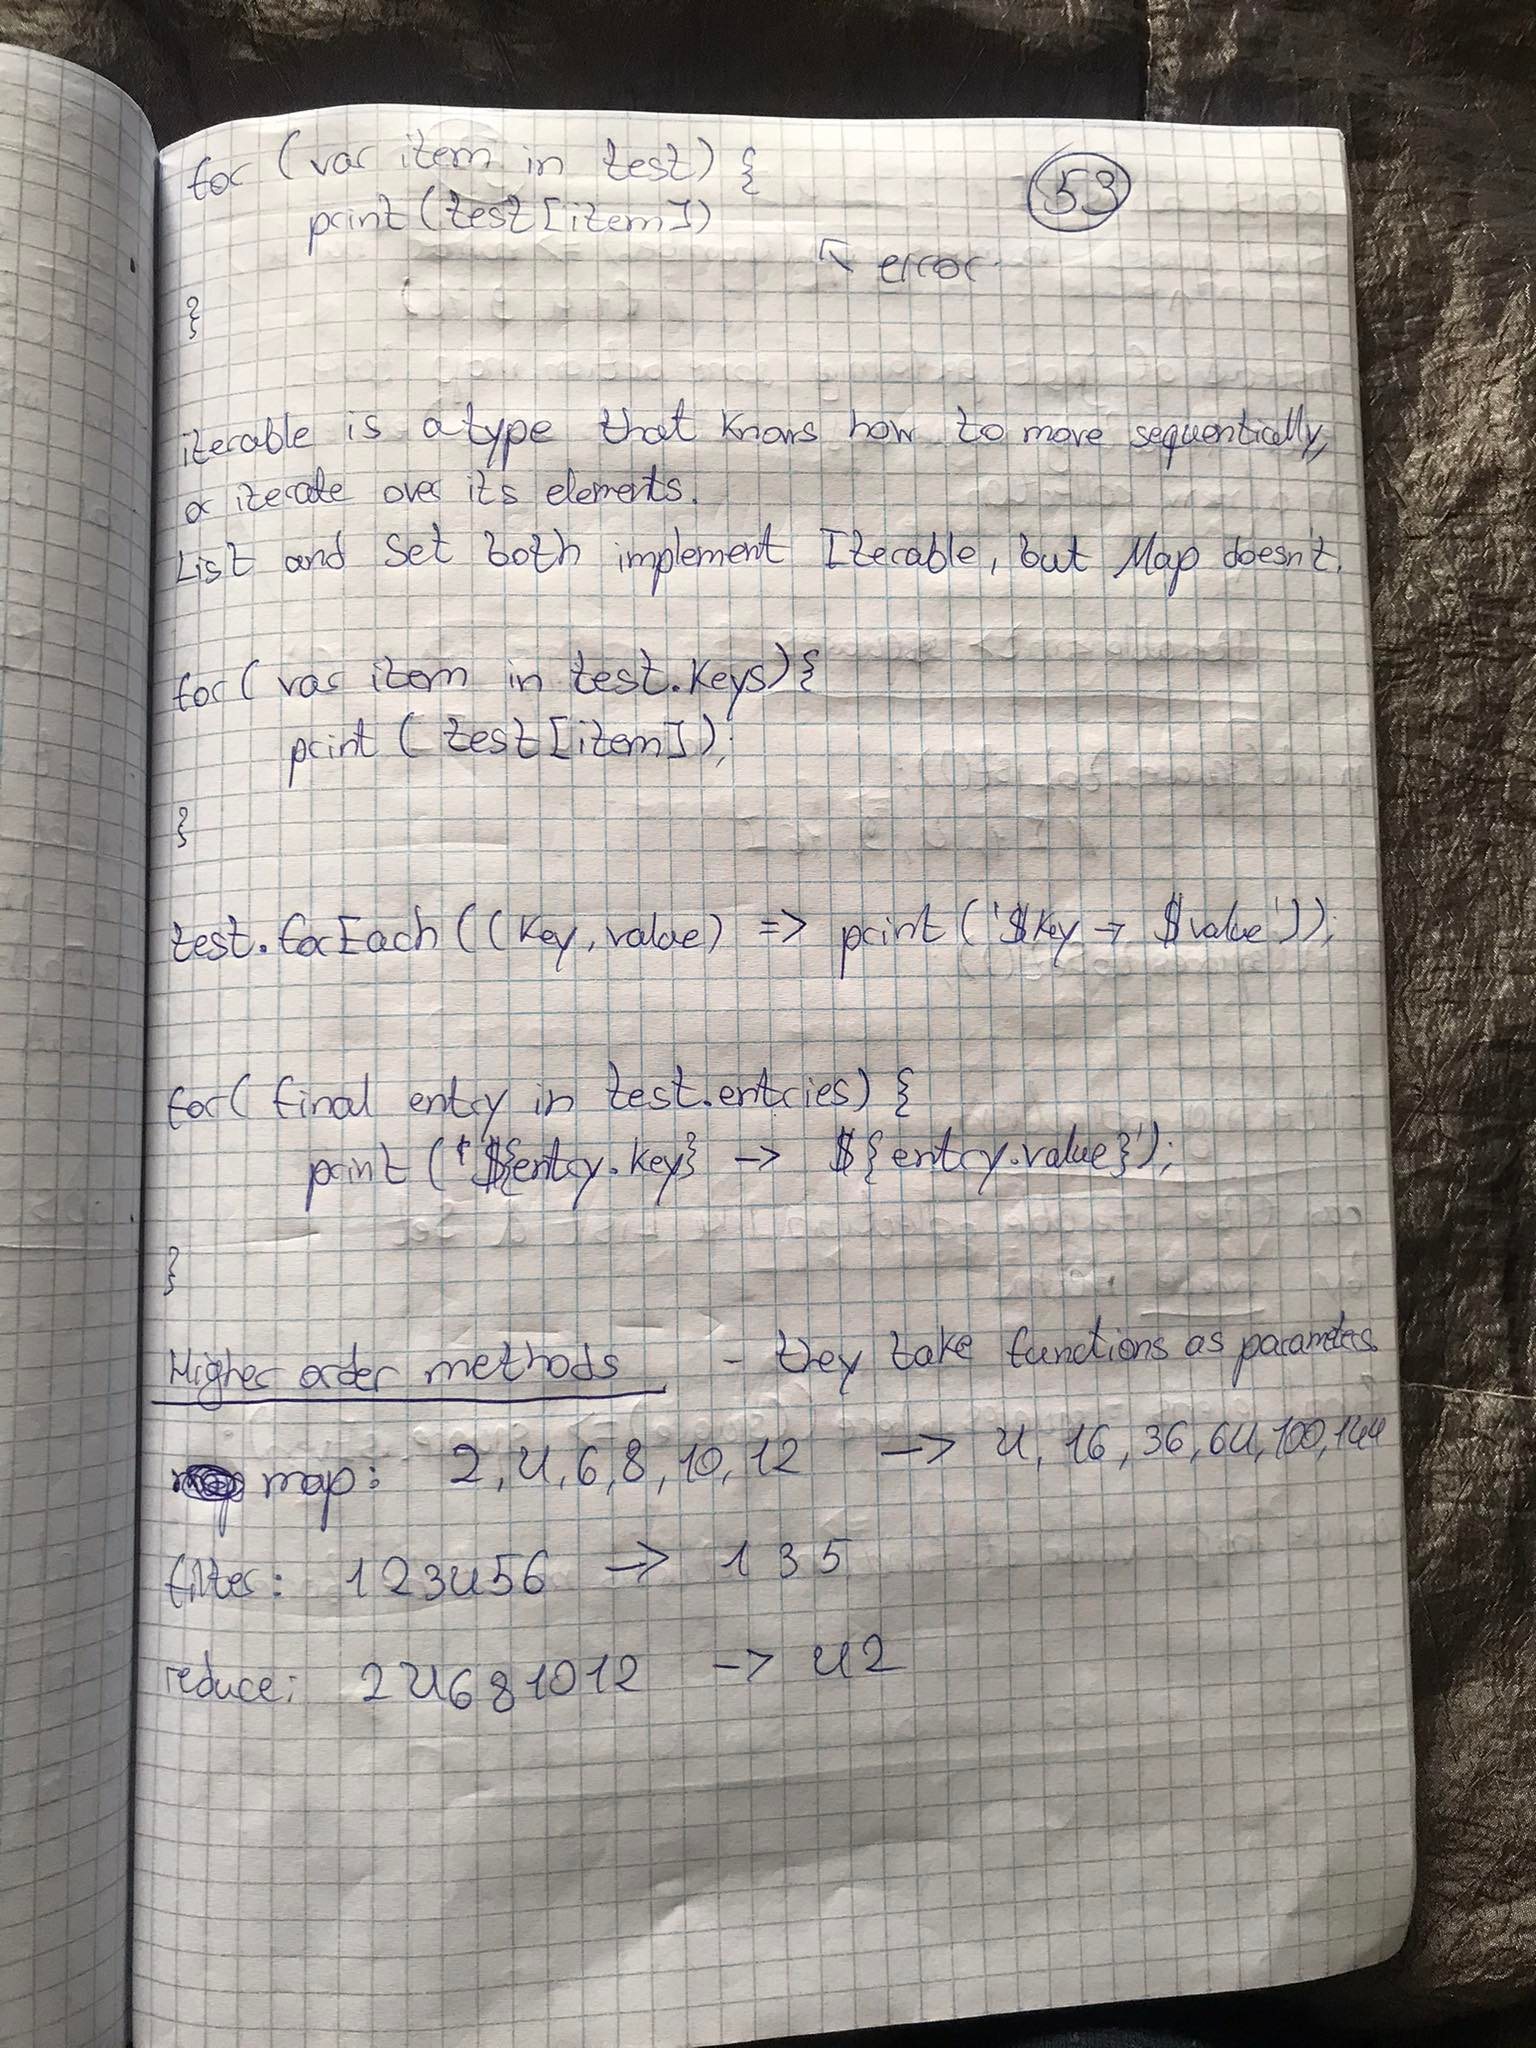 for (var item in test) {
53
print (test [item])
↖ error
}
iterable is a type that knows how to move sequentically,
or iterate over its elements.
List and Set both implement Iterable, but Map doesn't.
for ( var item in test.keys) {
print ( test [item] );
}
test.forEach ((key, value) => print ('$key → $value'));
for ( final entry in test.entries) {
print ('${entry.key} -> ${entry.value}');
}
Higher order methods - they take functions as parameters
map: 2, 4, 6, 8, 10, 12 -> 4, 16, 36, 64, 100, 144
filter: 1 2 3 4 5 6 -> 1 3 5
reduce: 2 4 6 8 10 12 -> 42